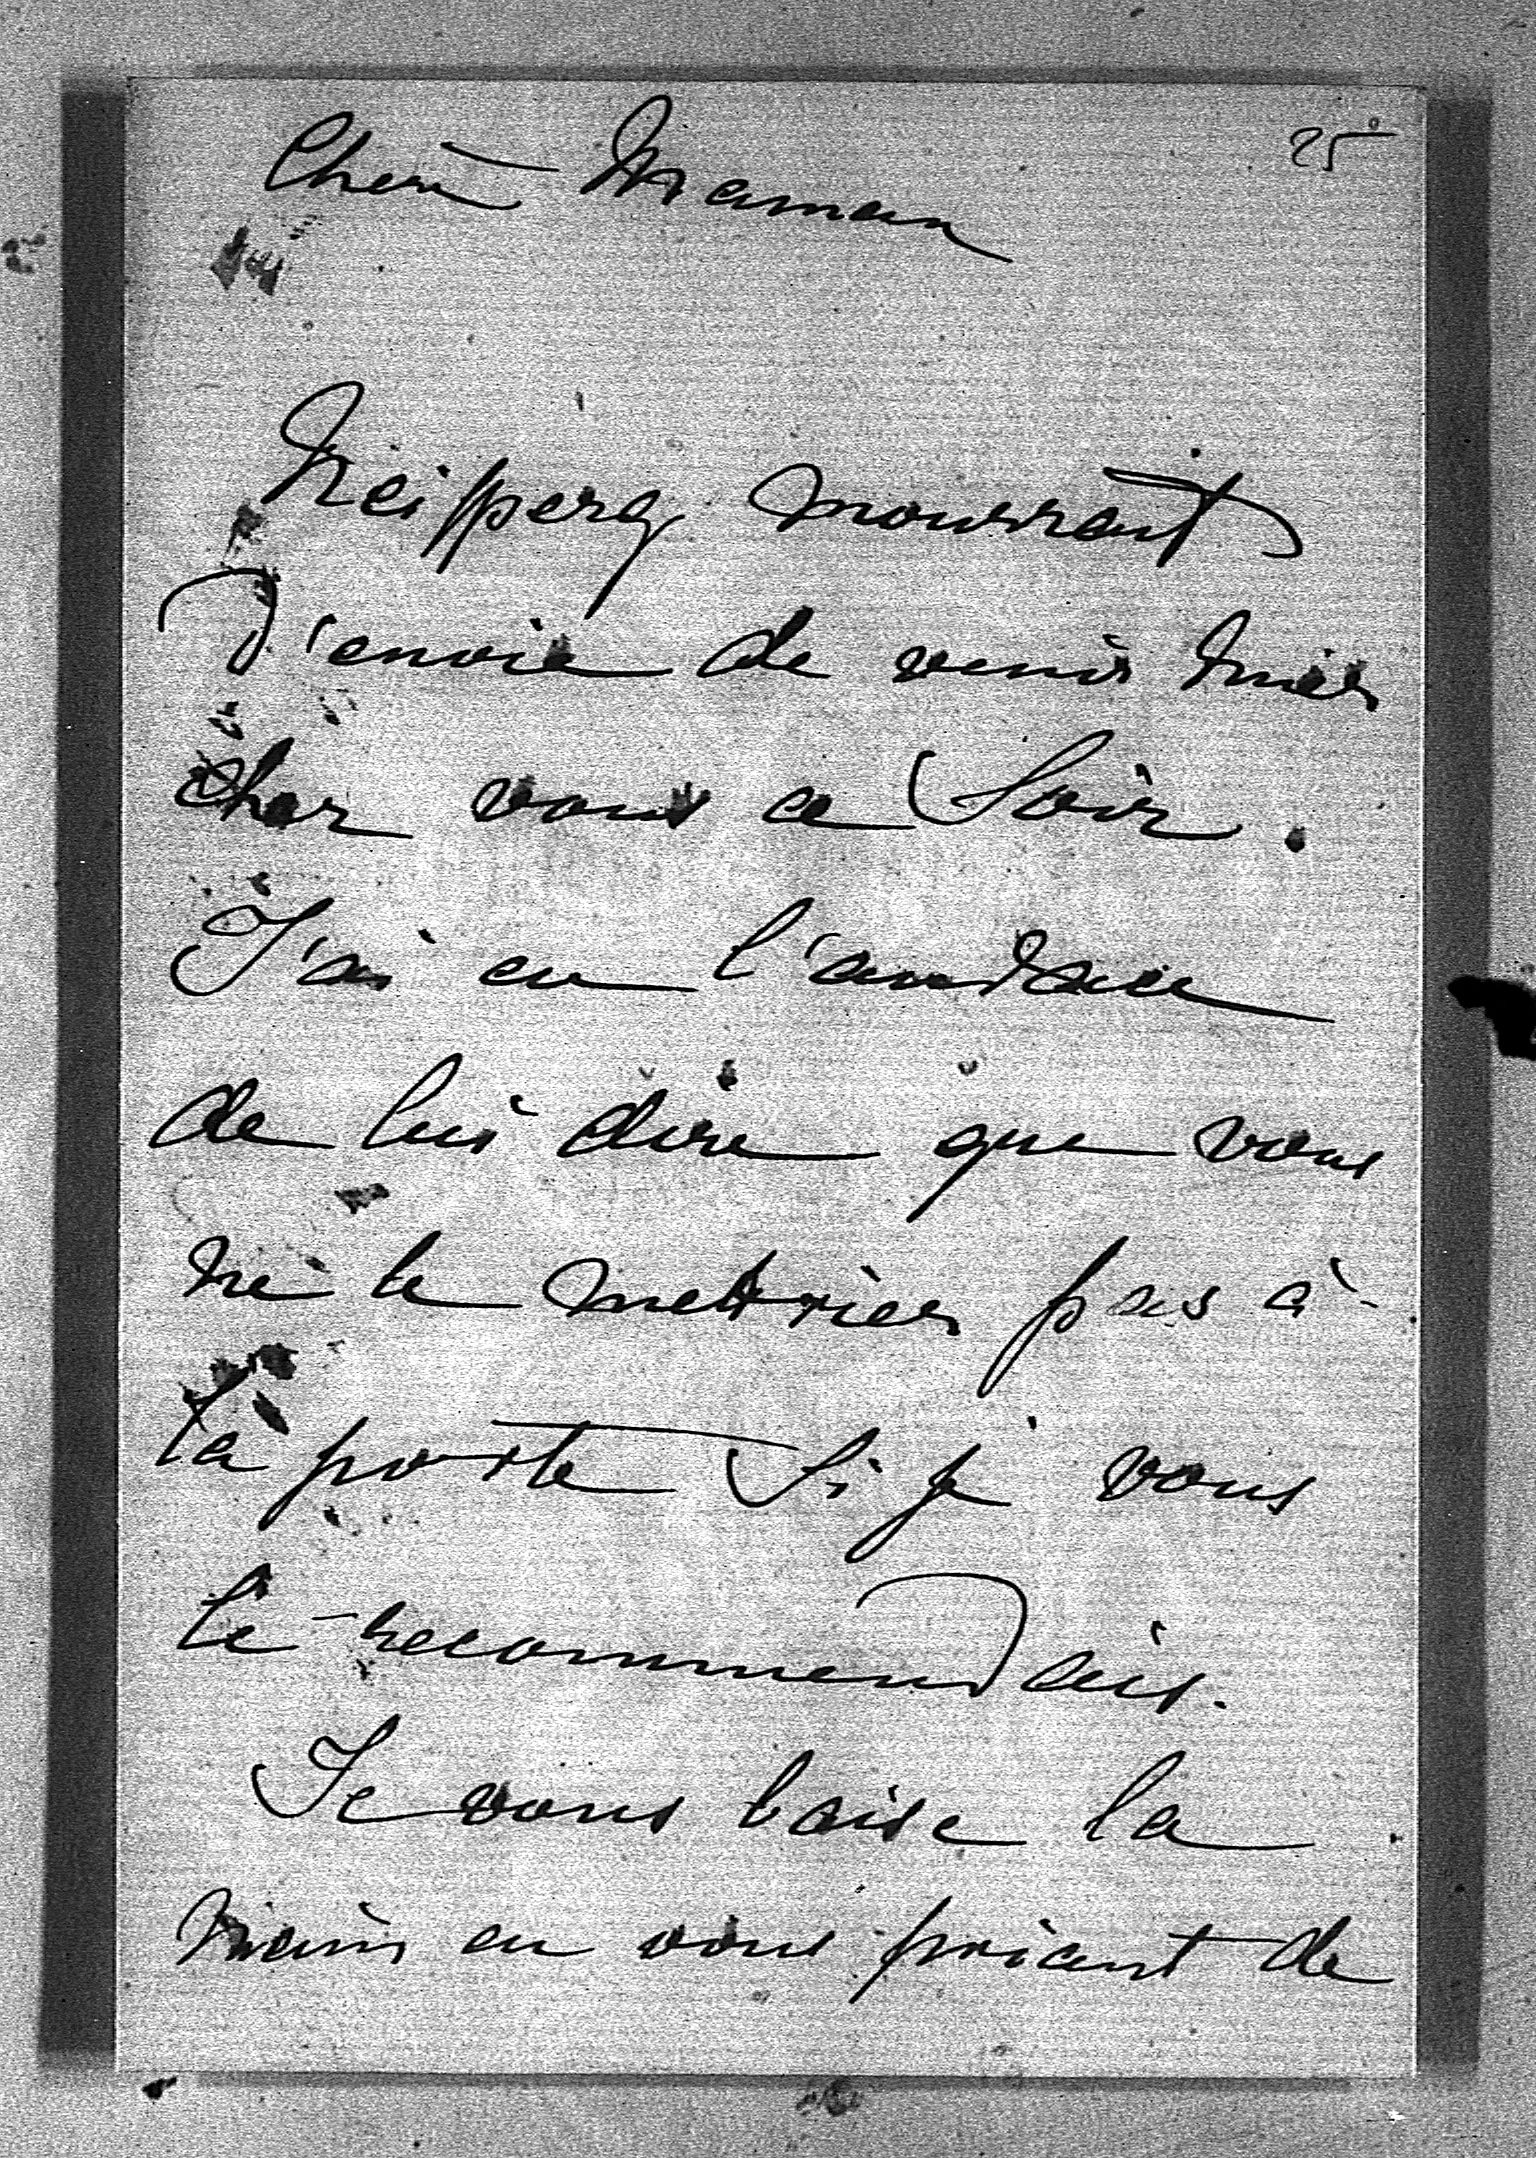 25
Chère Maman
Neipperg mourrait
d'envie de venir
chez vous ce Soir.
J'ai eu l'audace
de lui dire que vous
ne le mettriez pas à
la porte Si je vous
le recommendais.
Je vous baise la
main en vous priant de